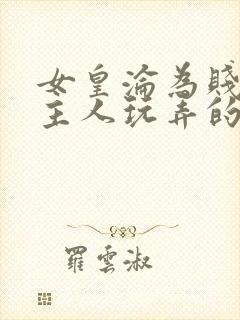 女皇淪為賤
主人玩弄的
羅雲淑